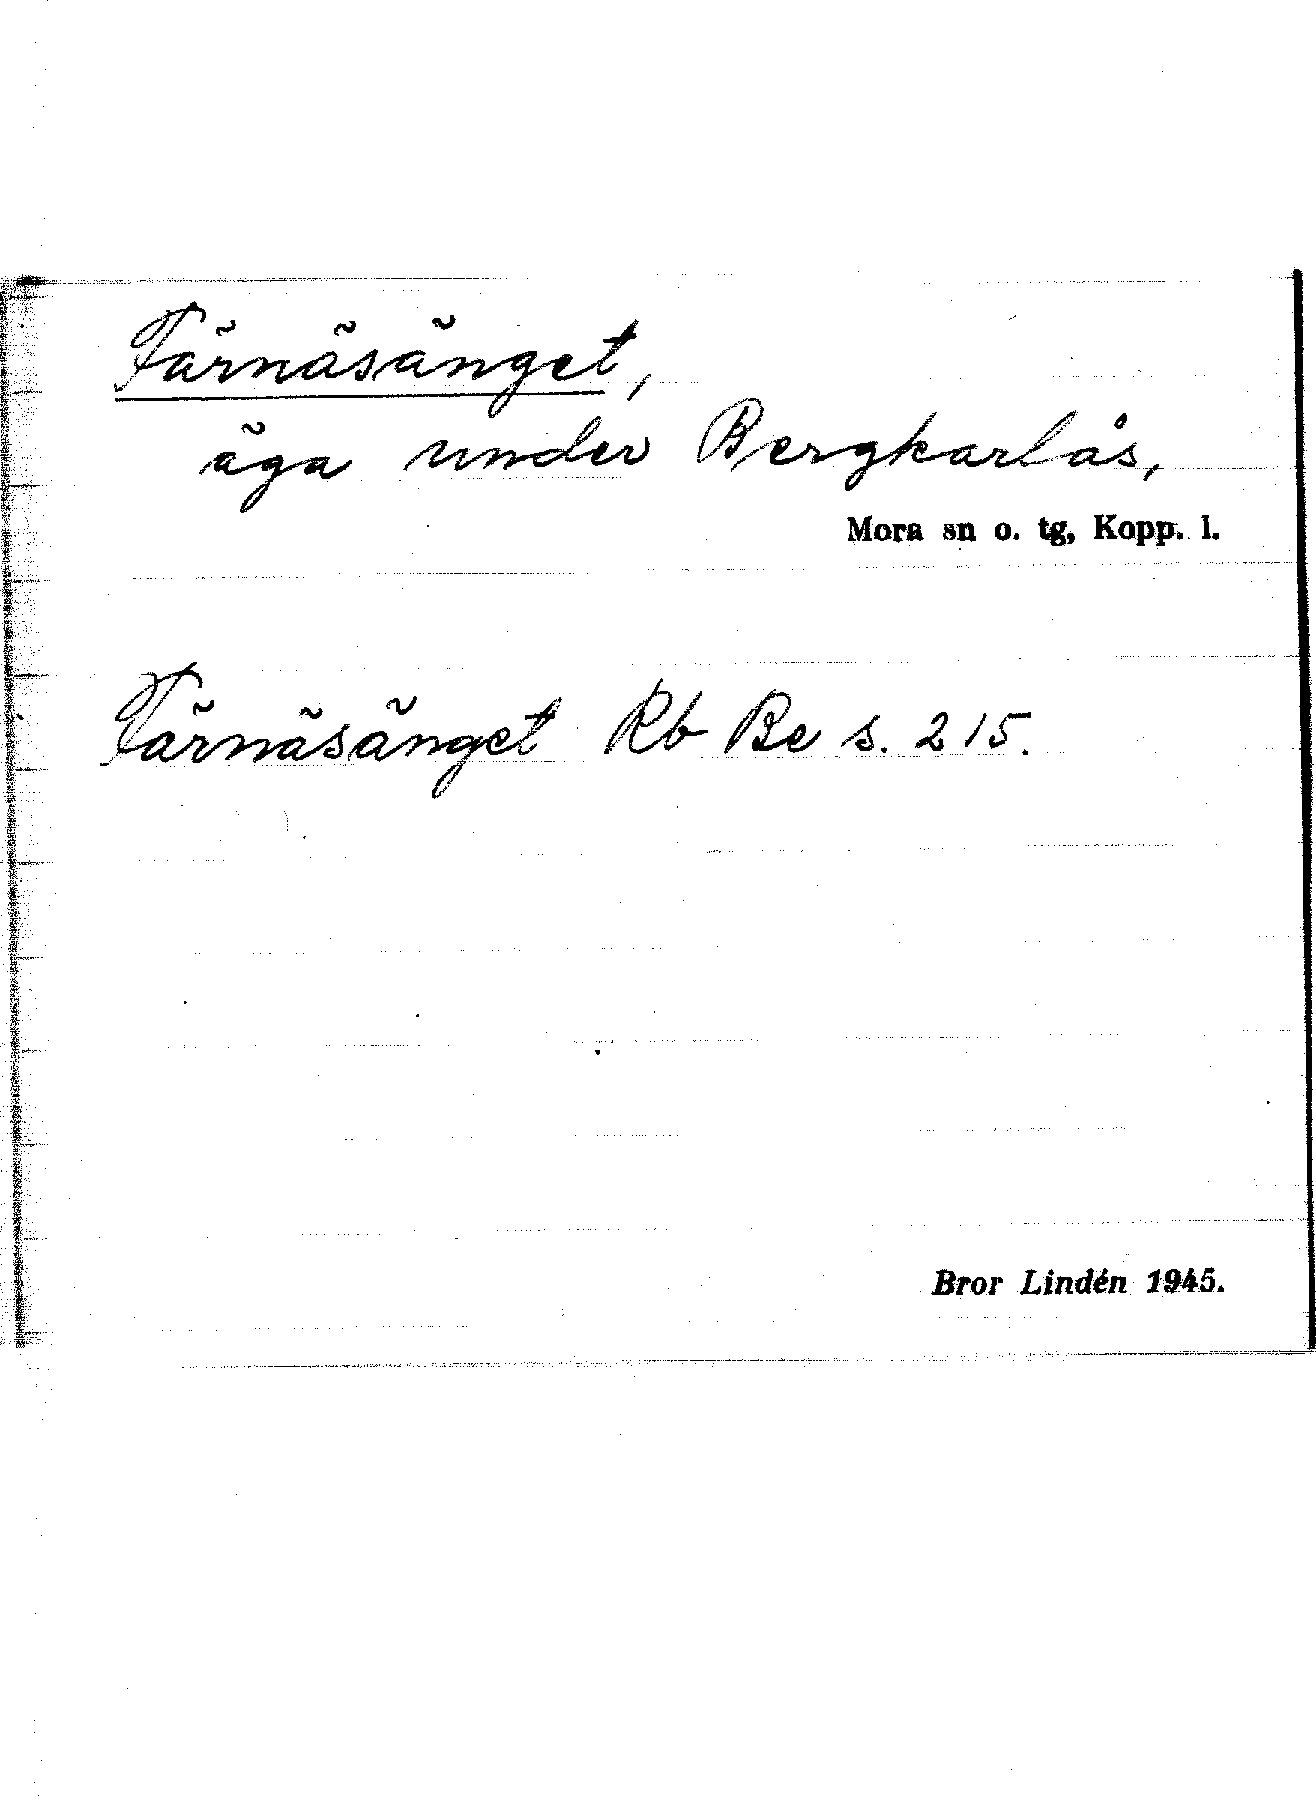 Färnäsänget,
äga under Bergkarlås,
Mora sn o. tg, Kopp. l.
Färnäsänget Rb Be s. 215.
Bror Lindén 1945.